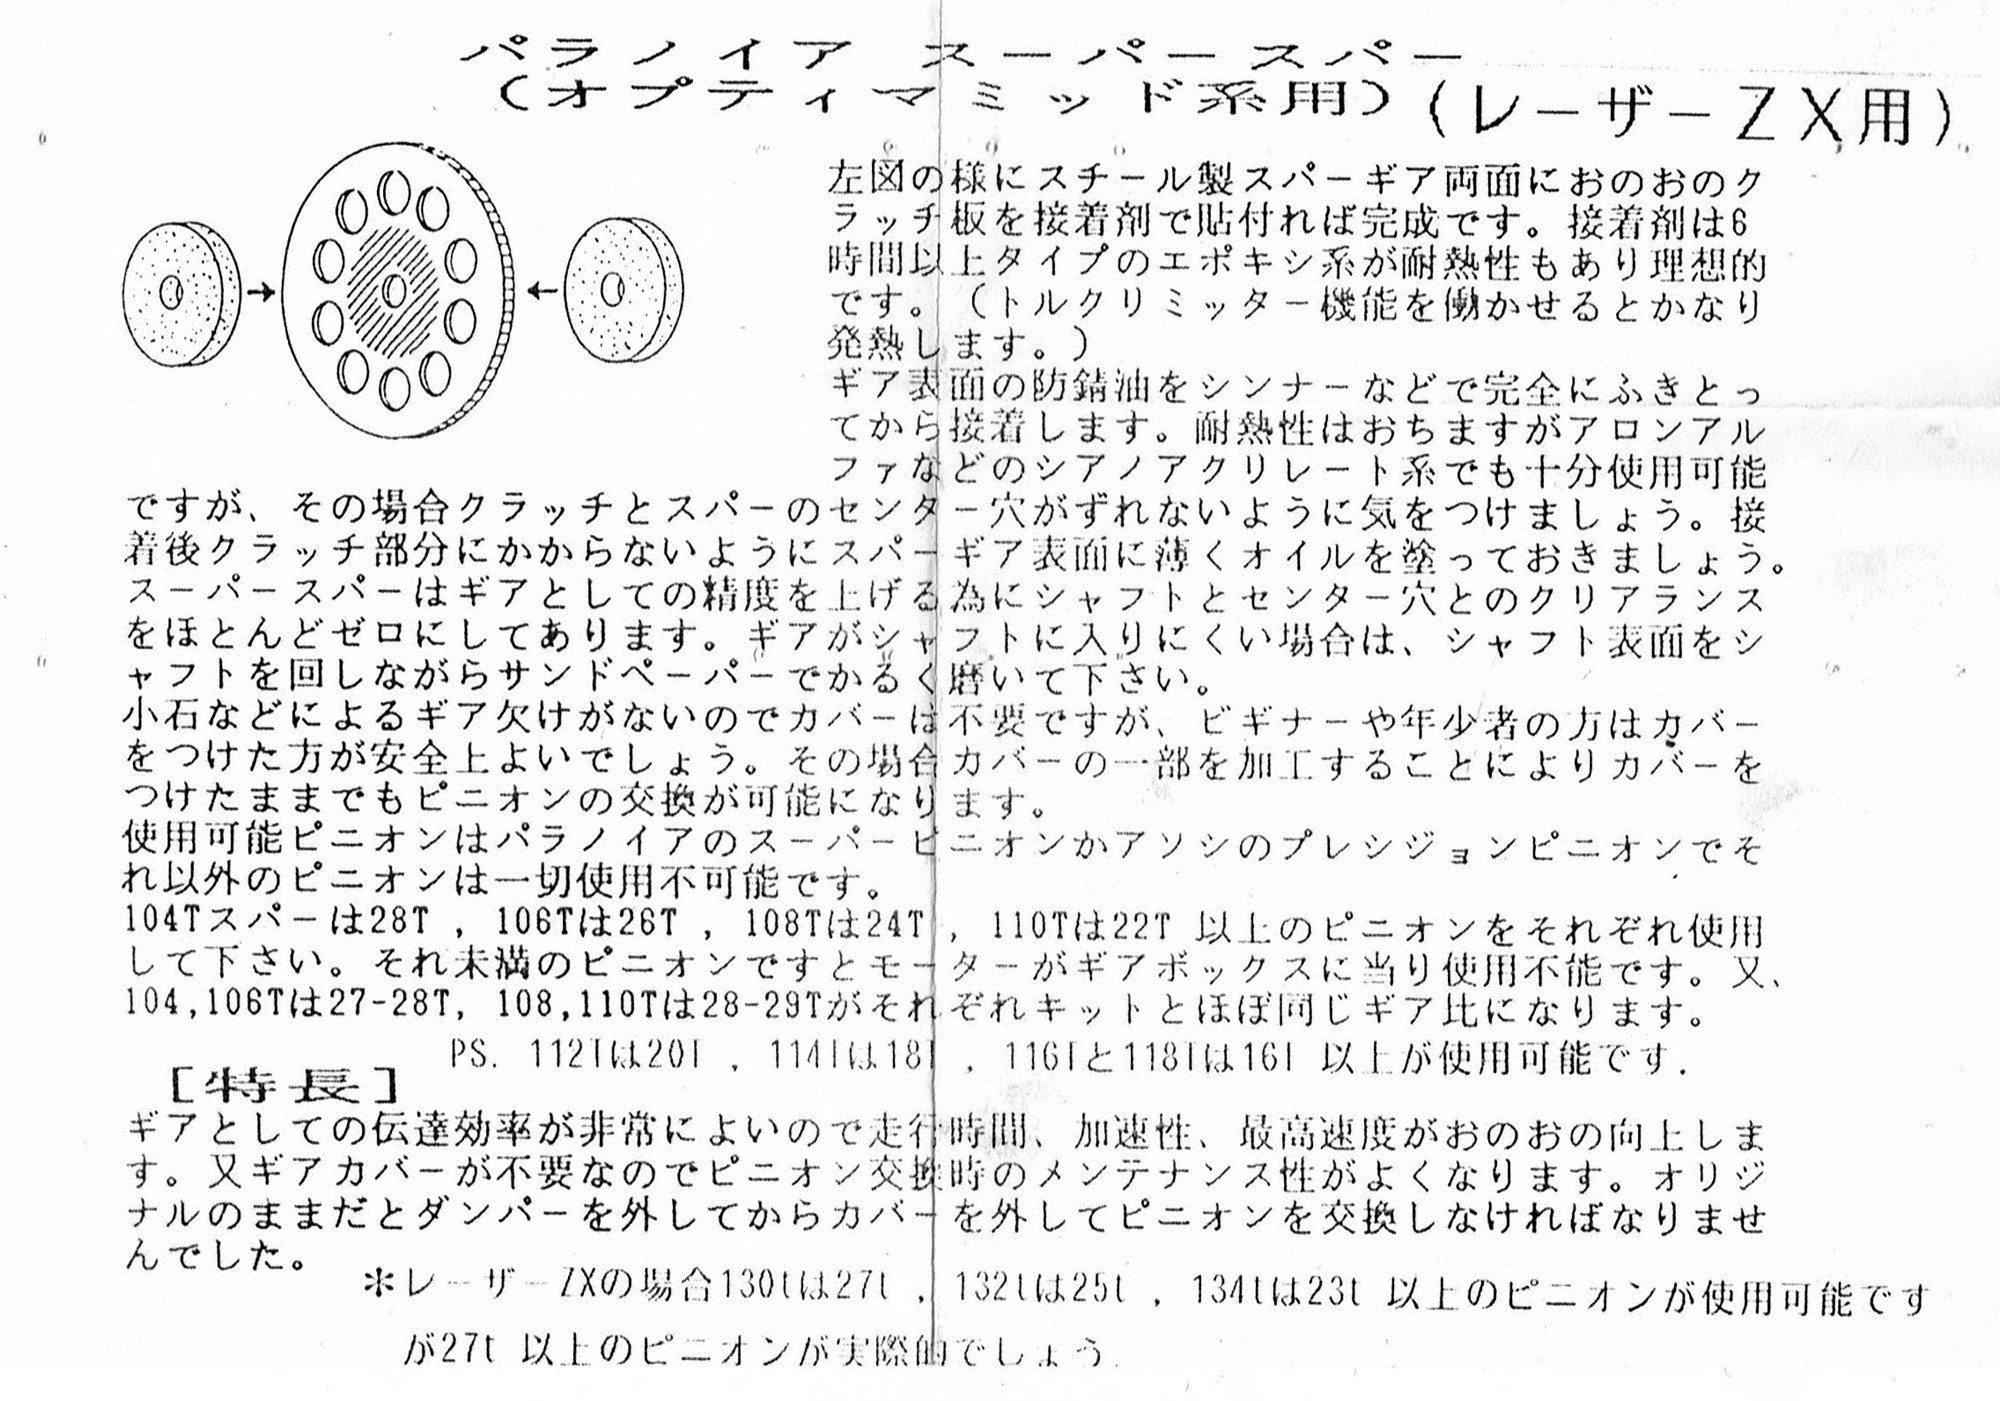 パラノイア スーパースパー
(オプティマミッド系用) (レーザーZX用)
左図の様にスチール製スパーギア両面におのおのク
ラッチ板を接着剤で貼付れば完成です。接着剤は6
時間以上タイプのエポキシ系が耐熱性もあり理想的
です。(トルクリミッター機能を働かせるとかなり
発熱します。)
ギア表面の防錆油をシンナーなどで完全にふきとっ
てから接着します。耐熱性はおちますがアロンアル
ファなどのシアノアクリレート系でも十分使用可能
ですが、その場合クラッチとスパーのセンター穴がずれないように気をつけましょう。接
着後クラッチ部分にかからないようにスパーギア表面に薄くオイルを塗っておきましょう。
スーパースパーはギアとしての精度を上げる為にシャフトとセンター穴とのクリアランス
をほとんどゼロにしてあります。ギアがシャフトに入りにくい場合は、シャフト表面をシ
ャフトを回しながらサンドペーパーでかるく磨いて下さい。
小石などによるギア欠けがないのでカバーは不要ですが、ビギナーや年少者の方はカバー
をつけた方が安全上よいでしょう。その場合カバーの一部を加工することによりカバーを
つけたままでもピニオンの交換が可能になります。
使用可能ピニオンはパラノイアのスーパーピニオンかアソシのプレシジョンピニオンでそ
れ以外のピニオンは一切使用不可能です。
104Tスパーは28T , 106Tは26T , 108Tは24T , 110Tは22T 以上のピニオンをそれぞれ使用
して下さい。それ未満のピニオンですとモーターがギアボックスに当り使用不能です。又、
104,106Tは27-28T, 108,110Tは28-29Tがそれぞれキットとほぼ同じギア比になります。
PS. 112Tは20T , 114Tは18T , 116Tと118Tは16T 以上が使用可能です.
[特長]
ギアとしての伝達効率が非常によいので走行時間、加速性、最高速度がおのおの向上しま
す。又ギアカバーが不要なのでピニオン交換時のメンテナンス性がよくなります。オリジ
ナルのままだとダンパーを外してからカバーを外してピニオンを交換しなければなりませ
んでした。
＊レーザーZXの場合130tは27t , 132tは25t , 134tは23t 以上のピニオンが使用可能です
が27t 以上のピニオンが実際的でしょう.